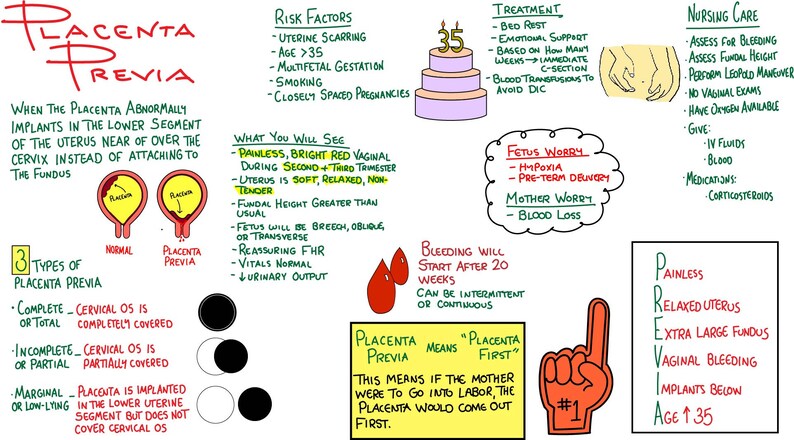 PLACENTA
PREVIA
WHEN THE PLACENTA ABNORMALLY
IMPLANTS IN THE LOWER SEGMENT
OF THE UTERUS NEAR OF OVER THE
CERVIX INSTEAD OF ATTACHING TO
THE FUNDUS
PLACENTA
PLACENTA
NORMAL
PLACENTA
PREVIA
3 TYPES OF
PLACENTA PREVIA
• COMPLETE
OR TOTAL – CERVICAL OS IS
COMPLETELY COVERED
• INCOMPLETE
OR PARTIAL – CERVICAL OS IS
PARTIALLY COVERED
• MARGINAL
OR LOW-LYING – PLACENTA IS IMPLANTED
IN THE LOWER UTERINE
SEGMENT BUT DOES NOT
COVER CERVICAL OS
RISK FACTORS
- UTERINE SCARRING
- AGE >35
- MULTIFETAL GESTATION
- SMOKING
- CLOSELY SPACED PREGNANCIES
35
WHAT YOU WILL SEE
- PAINLESS, BRIGHT RED VAGINAL
DURING SECOND + THIRD TRIMESTER
- UTERUS IS SOFT, RELAXED, NON-
TENDER
- FUNDAL HEIGHT GREATER THAN
USUAL
- FETUS WILL BE BREECH, OBLIQUE,
OR TRANSVERSE
- REASSURING FHR
- VITALS NORMAL
- ↓ URINARY OUTPUT
TREATMENT
- BED REST
- EMOTIONAL SUPPORT
- BASED ON HOW MANY
WEEKS → IMMEDIATE
C-SECTION
- BLOOD TRANSFUSIONS TO
AVOID DIC
FETUS WORRY
- HYPOXIA
- PRE-TERM DELIVERY
MOTHER WORRY
- BLOOD LOSS
NURSING CARE
• ASSESS FOR BLEEDING
• ASSESS FUNDAL HEIGHT
• PERFORM LEOPOLD MANEUVER
• NO VAGINAL EXAMS
• HAVE OXYGEN AVAILABLE
• GIVE:
• IV FLUIDS
• BLOOD
• MEDICATIONS:
• CORTICOSTEROIDS
BLEEDING WILL
START AFTER 20
WEEKS
CAN BE INTERMITTENT
OR CONTINUOUS
PLACENTA
PREVIA MEANS "PLACENTA
FIRST"
THIS MEANS IF THE MOTHER
WERE TO GO INTO LABOR, THE
PLACENTA WOULD COME OUT
FIRST.
#1
PAINLESS
RELAXED UTERUS
EXTRA LARGE FUNDUS
VAGINAL BLEEDING
IMPLANTS BELOW
AGE ↑ 35